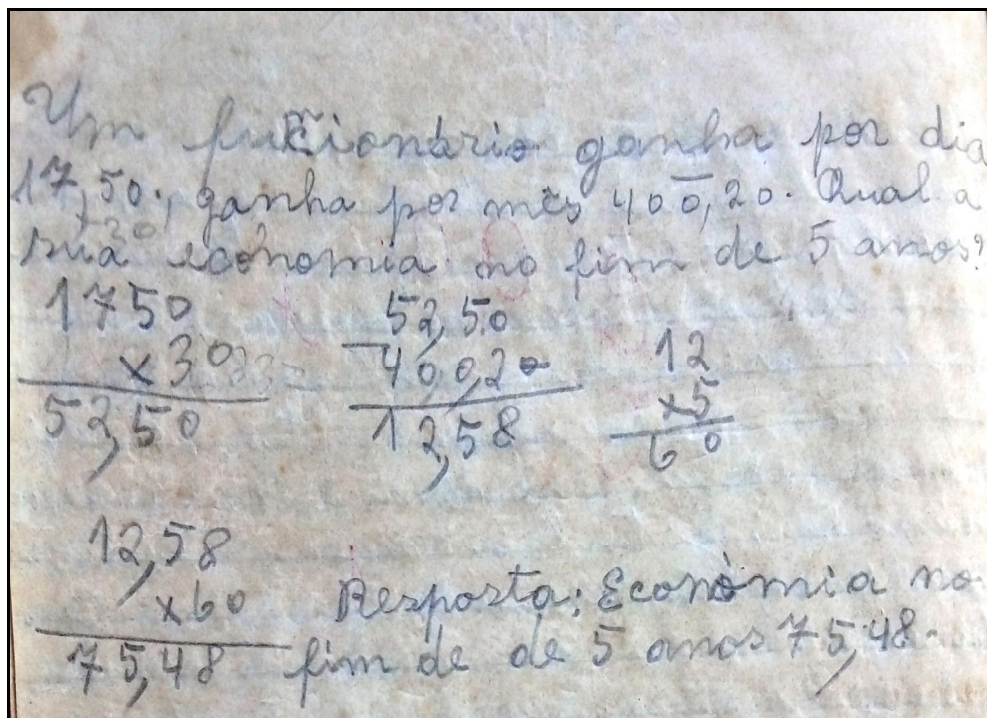 Um fucionário ganha por dia
17,50., ganha por mês 400,20. Qual a
sua economia no fim de 5 anos?
1750
x30
52,50
52,50
400,20
12,58
12
x5
60
12,58
x60
75,48
Resposta: Econômia no
fim de de 5 anos 75,48.